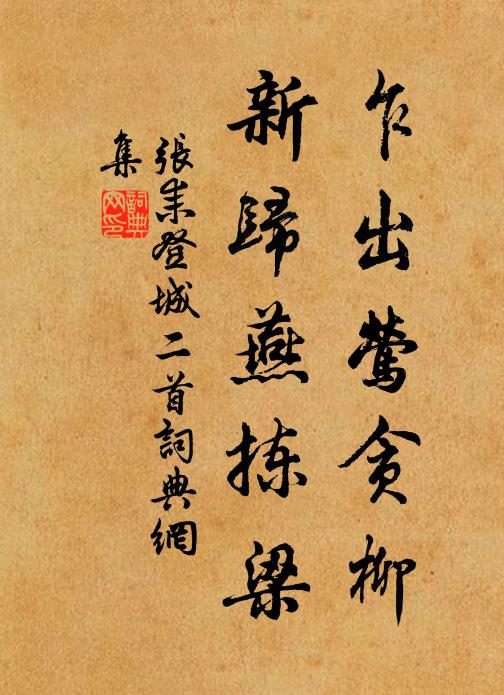 乍出鶯贪柳
新歸燕拣梁
張耒登城二首詞典網
集
詞典
网印